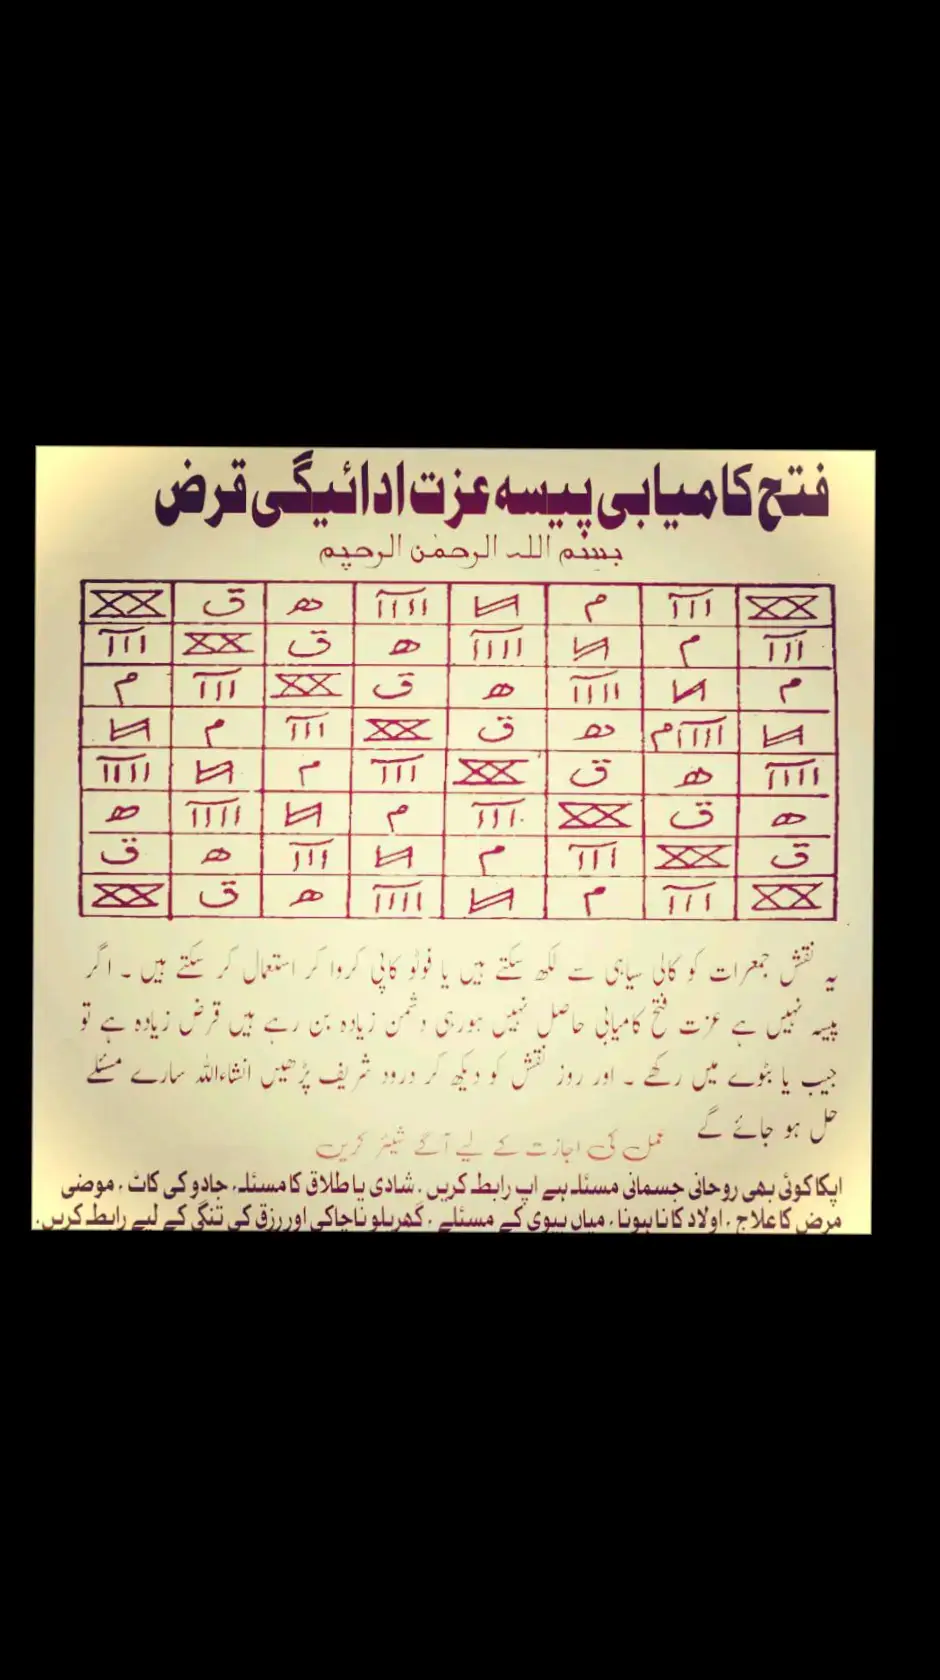 فتح کامیابی پیسہ عزت ادائیگی قرض
بسم اللہ الرحمٰن الرحیم
ق ھ م
م ھ ق
م ق ھ م
م ھ ق م
م ق ھ
ھ م ق ھ
ق ھ م ق
ق ھ م
یہ نقش جمعرات کو کالی سیاہی سے لکھ سکتے ہیں یا فوٹو کاپی کروا کر استعمال کر سکتے ہیں ۔ اگر
پیسہ نہیں ہے عزت فتح کامیابی حاصل نہیں ہورہی دشمن زیادہ بن رہے ہیں قرض زیادہ ہے تو
جیب یا بٹوے میں رکھے ۔ اور روز نقش کو دیکھ کر درود شریف پڑھیں انشاءاللہ سارے مسئلے
حل ہو جائے گے
عمل کی اجازت کے لیے آگے شیئر کریں
اپکا کوئی بھی روحانی جسمانی مسئلہ ہے اپ رابطہ کریں ۔ شادی یا طلاق کا مسئلہ ، جادو کی کاٹ ، موضی
مرض کا علاج ، اولاد کا نا ہونا ، میاں بیوی کے مسئلے ، گھریلو ناچاکی اور رزق کی تنگی کے لیے رابطہ کریں.